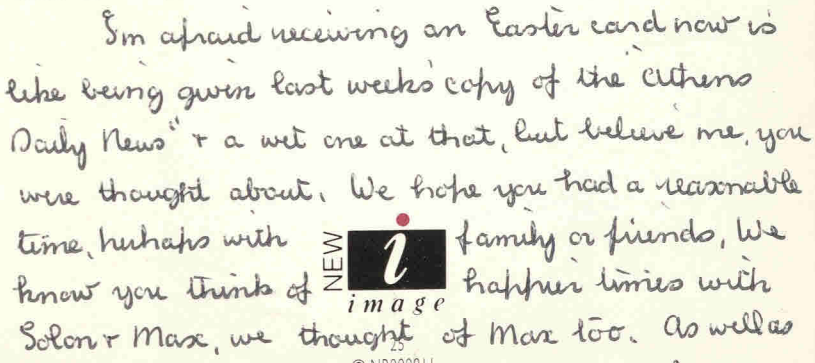 I'm afraid receiving an Easter card now is
like being given last weeks' copy of the "Athens
Daily News" + a wet one at that, but believe me, you
were thought about. We hope you had a reasonable
time, perhaps with NEW i image family or friends, We
know you think of happier times with
Solon + Max, we thought of Max too. As well as
25